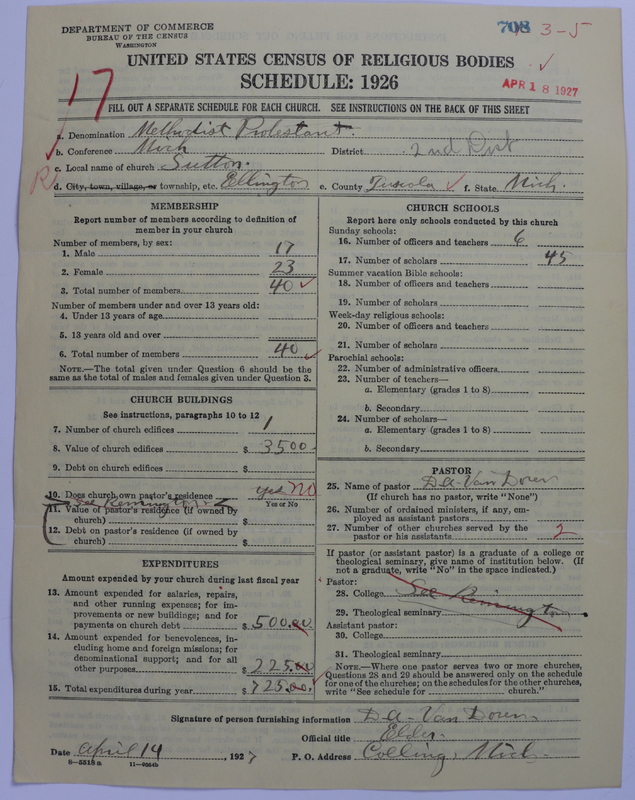 DEPARTMENT OF COMMERCE
BUREAU OF THE CENSUS
WASHINGTON
708 3-5
UNITED STATES CENSUS OF RELIGIOUS BODIES
SCHEDULE: 1926
APR 18 1927
17
FILL OUT A SEPARATE SCHEDULE FOR EACH CHURCH. SEE INSTRUCTIONS ON THE BACK OF THIS SHEET
a. Denomination Methodist Protestant.
b. Conference Mich District 2nd Dist
c. Local name of church Sutton.
d. City, town, village, or township, etc. Ellington e. County Tuscola f. State Mich.
MEMBERSHIP
Report number of members according to definition of
member in your church
Number of members, by sex:
1. Male 17
2. Female 23
3. Total number of members 40
Number of members under and over 13 years old:
4. Under 13 years of age
5. 13 years old and over
6. Total number of members 40
NOTE.—The total given under Question 6 should be the
same as the total of males and females given under Question 3.
CHURCH BUILDINGS
See instructions, paragraphs 10 to 12
7. Number of church edifices 1
8. Value of church edifices $ 3500.
9. Debt on church edifices $
10. Does church own pastor's residence yes no
Yes or No
See Remington
11. Value of pastor's residence (if owned by
church) $
12. Debt on pastor's residence (if owned by
church) $
EXPENDITURES
Amount expended by your church during last fiscal year
13. Amount expended for salaries, repairs,
and other running expenses; for im-
provements or new buildings; and for
payments on church debt $ 500.00
14. Amount expended for benevolences, in-
cluding home and foreign missions; for
denominational support; and for all
other purposes $ 225.00
15. Total expenditures during year $ 725.00
CHURCH SCHOOLS
Report here only schools conducted by this church
Sunday schools:
16. Number of officers and teachers 6
17. Number of scholars 45
Summer vacation Bible schools:
18. Number of officers and teachers
19. Number of scholars
Week-day religious schools:
20. Number of officers and teachers
21. Number of scholars
Parochial schools:
22. Number of administrative officers
23. Number of teachers—
a. Elementary (grades 1 to 8)
b. Secondary
24. Number of scholars—
a. Elementary (grades 1 to 8)
b. Secondary
PASTOR
25. Name of pastor D.A. Van Doren
(If church has no pastor, write "None")
26. Number of ordained ministers, if any, em-
ployed as assistant pastors
27. Number of other churches served by the
pastor or his assistants 2
If pastor (or assistant pastor) is a graduate of a college or
theological seminary, give name of institution below. (If
not a graduate, write "No" in the space indicated.)
Pastor:
28. College See Remington
29. Theological seminary
Assistant pastor:
30. College
31. Theological seminary
NOTE.—Where one pastor serves two or more churches,
Questions 28 and 29 should be answered only on the schedule
for one of the churches; on the schedules for the other churches,
write "See schedule for church."
Signature of person furnishing information D.A. Van Doren
Official title Elder
Date April 14, 1927 P. O. Address Colling, Mich.
8-5518a 11-9554b